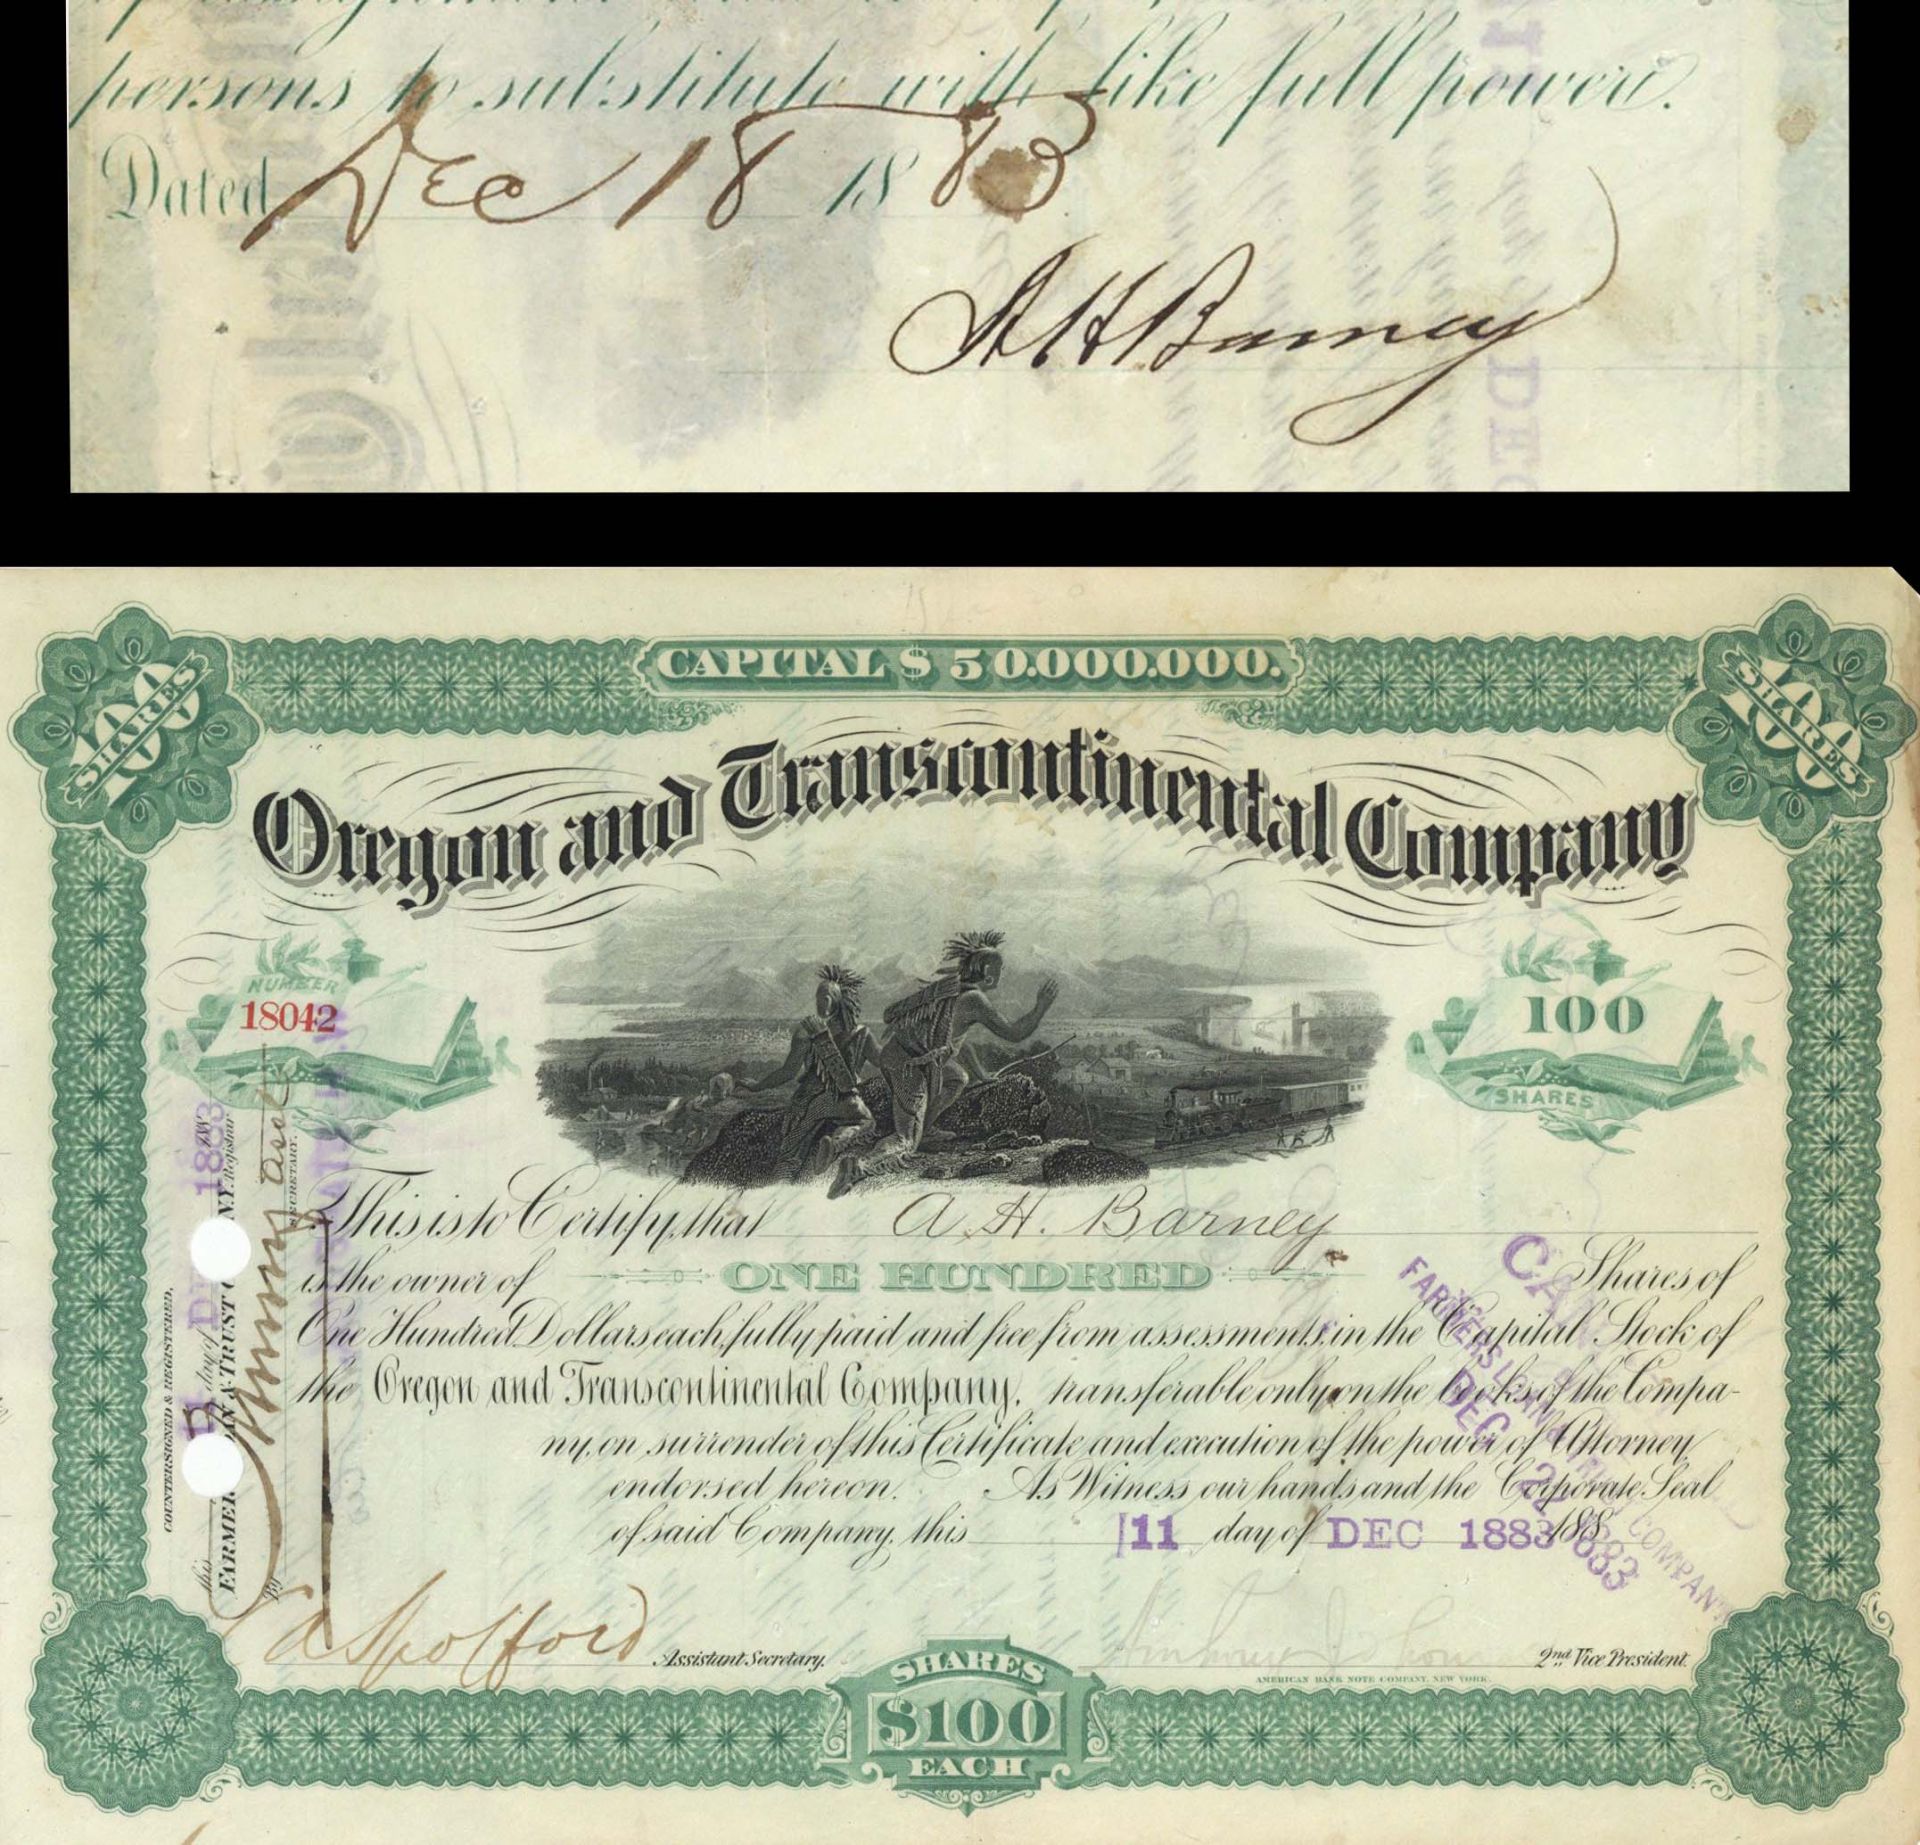 persons to substitute with like full power.
Dated Dec 18 1883
A H Barney
CAPITAL $ 50.000.000.
100 SHARES
100 SHARES
Oregon and Transcontinental Company
NUMBER
18042
100
SHARES
This is to Certify, that A. H. Barney
is the owner of ONE HUNDRED Shares of
One Hundred Dollars each, fully paid and free from assessments, in the Capital Stock of
the Oregon and Transcontinental Company, transferable only on the books of the Compa-
ny, on surrender of this Certificate and execution of the power of Attorney
endorsed hereon. As Witness our hands and the Corporate Seal
of said Company, this 11 day of DEC 1883 188
FARMERS LOAN & TRUST COMPANY
DEC 22 1883
COUNTERSIGNED & REGISTERED,
this 11 day of DEC 1883
FARMERS LOAN & TRUST COMPANY N.Y. Registrar
By SECRETARY.
Spofford Assistant Secretary.
2nd Vice President.
AMERICAN BANK NOTE COMPANY, NEW YORK.
SHARES
$100
EACH